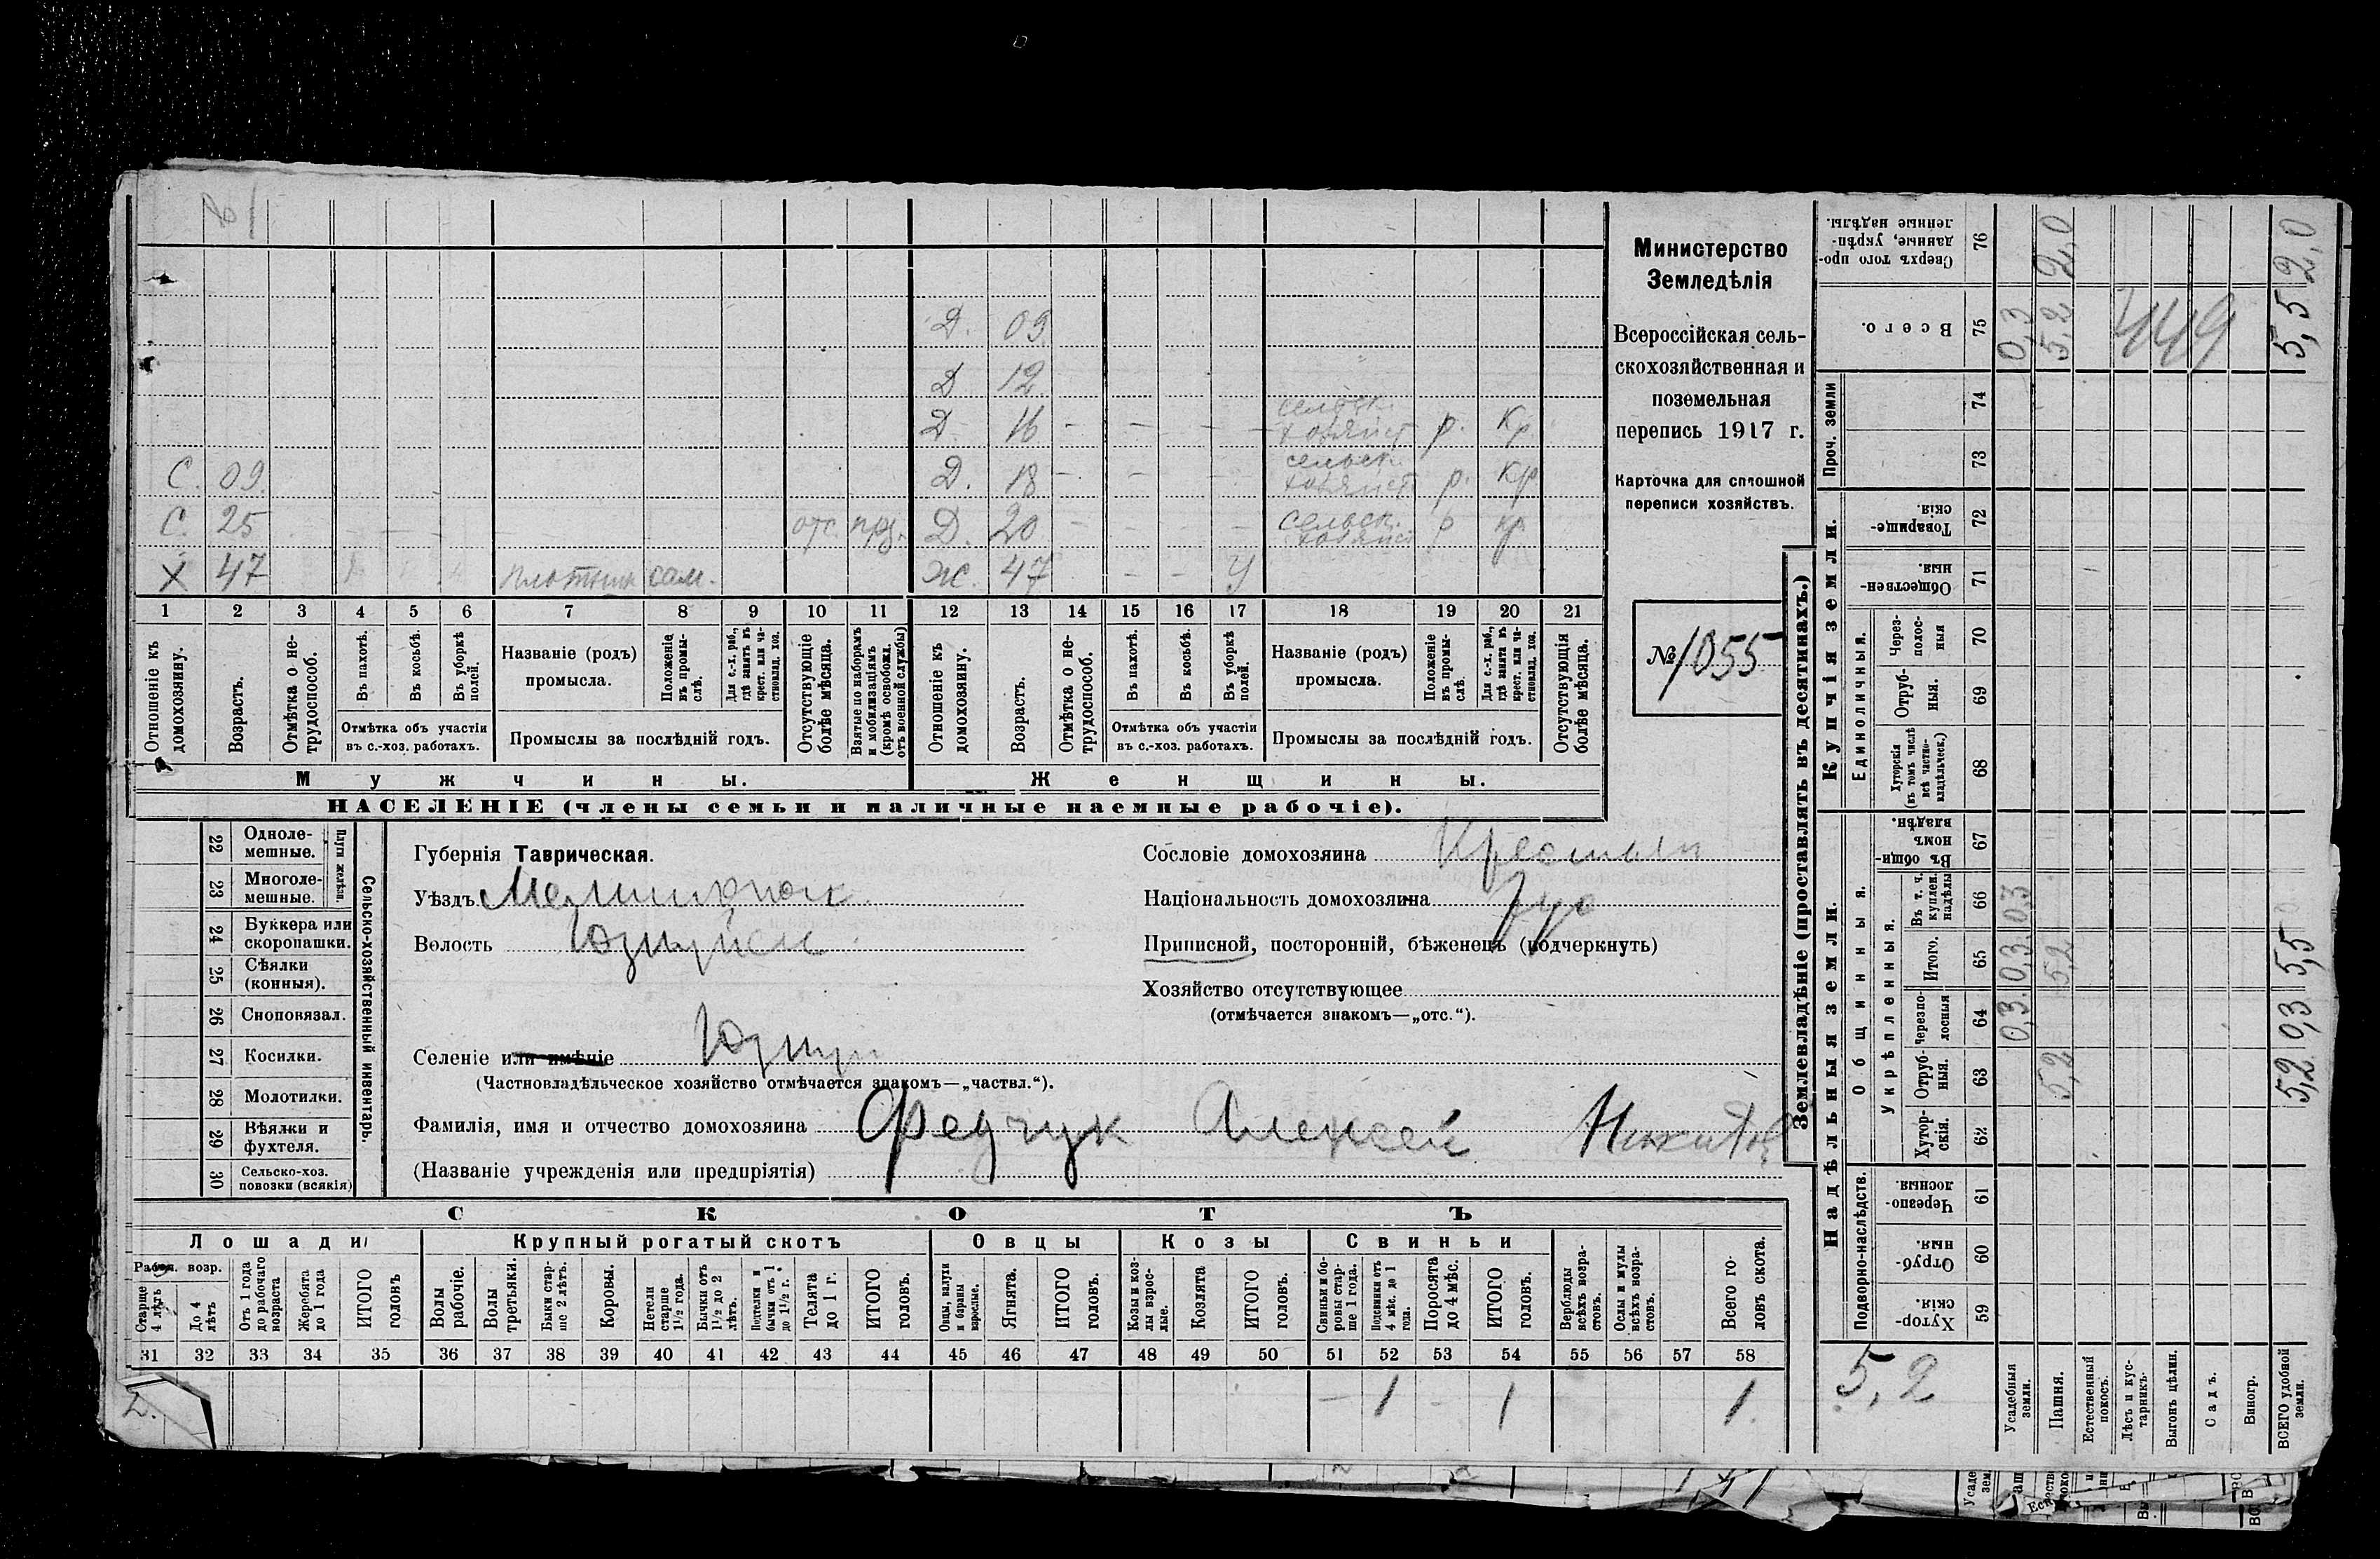 Д. 09
Д 12
Д. 16 - - - - сельск. хозяйст р. Кр
С. 09. Д. 18 - - - сельск. хозяйст р. Кр
С. 25 - - отс. Д. 20 - - - - сельск. хозяйст р кр.
Х 47 плотник сам. ж. 47 - - У
1 2 3 4 5 6 7 8 9 10 11 12 13 14 15 16 17 18 19 20 21
Отношеніе къ домохозяину.
Возрастъ.
Отмѣтка о не-трудоспособ.
Въ пахотѣ.
Въ косьбѣ.
Въ уборкѣ полей.
Отмѣтка объ участіи
въ с.-хоз. работахъ.
Названіе (родъ)
промысла.
Положеніе въ промы-слѣ.
Для с.-х. раб., гдѣ занятъ въ крест. или ча-стновлад. хоз.
Промыслы за послѣдній годъ.
Отсутствующіе болѣе мѣсяца.
Взятые по наборамъ и мобилизаціямъ (кромѣ освобожд. отъ военной службы)
Отношеніе къ домохозяину.
Возрастъ.
Отмѣтка о не-трудоспособ.
Въ пахотѣ.
Въ косьбѣ.
Въ уборкѣ полей.
Отмѣтка объ участіи
въ с.-хоз. работахъ.
Названіе (родъ)
промысла.
Положеніе въ промы-слѣ.
Для с.-х. раб., гдѣ занята въ крест. или ча-стновлад. хоз.
Промыслы за послѣдній годъ.
Отсутствующія болѣе мѣсяца.
Мужчины. Женщины.
НАСЕЛЕНІЕ (члены семьи и наличные наемные рабочіе).
Министерство
Земледѣлія
Всероссійская сель-
скохозяйственная и
поземельная
перепись 1917 г.
Карточка для сплошной
переписи хозяйствъ.
№ 1055
22 Одноле-мешные.
23 Многоле-мешные.
Плуги желѣзн.
24 Буккера или скоропашки.
25 Сѣялки (конныя).
26 Сноповязал.
27 Косилки.
28 Молотилки.
29 Вѣялки и фухтеля.
30 Сельско-хоз. повозки (всякія)
Сельско-хозяйственный инвентарь.
Губернія Таврическая.
Уѣздъ
Волость
Селеніе или имѣніе
(Частновладѣльческое хозяйство отмѣчается знакомъ—„частвл.“).
Фамилія, имя и отчество домохозяина Федчук Алексей
(Названіе учрежденія или предпріятія)
Сословіе домохозяина
Національность домохозяина
Приписной, посторонній, бѣженецъ (подчеркнуть)
Хозяйство отсутствующее
(отмѣчается знакомъ—„отс.“).
СКОТЪ
Лошади Крупный рогатый скотъ Овцы Козы Свиньи
Рабоч. возр.
Старше 4 лѣтъ
До 4 лѣтъ
Отъ 1 года до рабочаго возраста
Жеребята до 1 года
ИТОГО головъ
Волы рабочіе.
Волы третьяки.
Быки стар-ше 2 лѣтъ.
Коровы.
Нетели старше 1½ года.
Бычки отъ 1½ до 2 лѣтъ.
Подтелки и бычки отъ 1 до 1½ г.
Телята до 1 г.
ИТОГО головъ.
Овцы, валухи и бараны взрослые.
Ягнята.
ИТОГО головъ.
Козы и коз-лы взрос-лые.
Козлята
ИТОГО головъ.
Свиньи и бо-ровы стар-ше 1 года.
Подсвинки отъ 4 мѣс. до 1 года.
Поросята до 4 мѣс.
ИТОГО головъ.
Верблюды всѣхъ возра-стовъ.
Ослы и мулы всѣхъ возра-стовъ.
Всего го-ловъ скота.
31 32 33 34 35 36 37 38 39 40 41 42 43 44 45 46 47 48 49 50 51 52 53 54 55 56 57 58
- 1 - 1 1.
Землевладѣніе (проставлять въ десятинахъ.)
Надѣльныя земли. Купчія земли. Проч. земли
Подворно-наслѣдств.
Общинныя.
Укрѣпленныя.
Единоличныя.
59 Хутор-скія.
60 Отруб-ныя.
61 Черезпо-лосныя.
62 Хутор-скія.
63 Отруб-ныя. 5,2 5,2
64 Черезпо-лосныя 0,3 0,3
65 Итого. 0,3 5,2 5,5
66 Въ т. ч. куплен. надѣлы 0,3
67 Въ общи-номъ владѣн.
68 Хуторскія (въ томъ числѣ всѣ частно-владѣльческ.)
69 Отруб-ныя.
70 Через-полос-ныя
71 Обществен-ныя.
72 Товарище-скія.
73
74
75 Всего. 0,3 5,2 449 5,5
76 Сверхъ того про-данные, укрѣп-ленные надѣлы. 2,0 2,0
5,2
Усадебныя земли.
Пашня.
Естественный покосъ.
Лѣсъ и кус-тарникъ.
Выгонъ цѣлин.
Садъ.
Виногр.
ВСЕГО удобной земли.